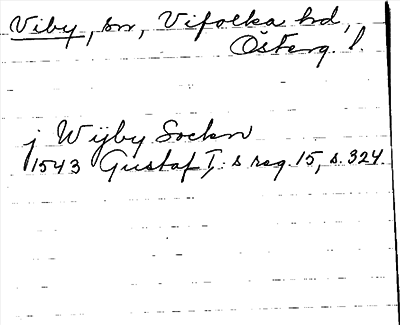 Viby, sn, Vifolka hd,
Österg. l.
j Wijby Sockn
1543 Gustaf I:s reg. 15, s. 324